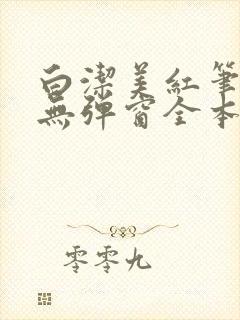 白潔美紅筆
無彈窗全本
零零九